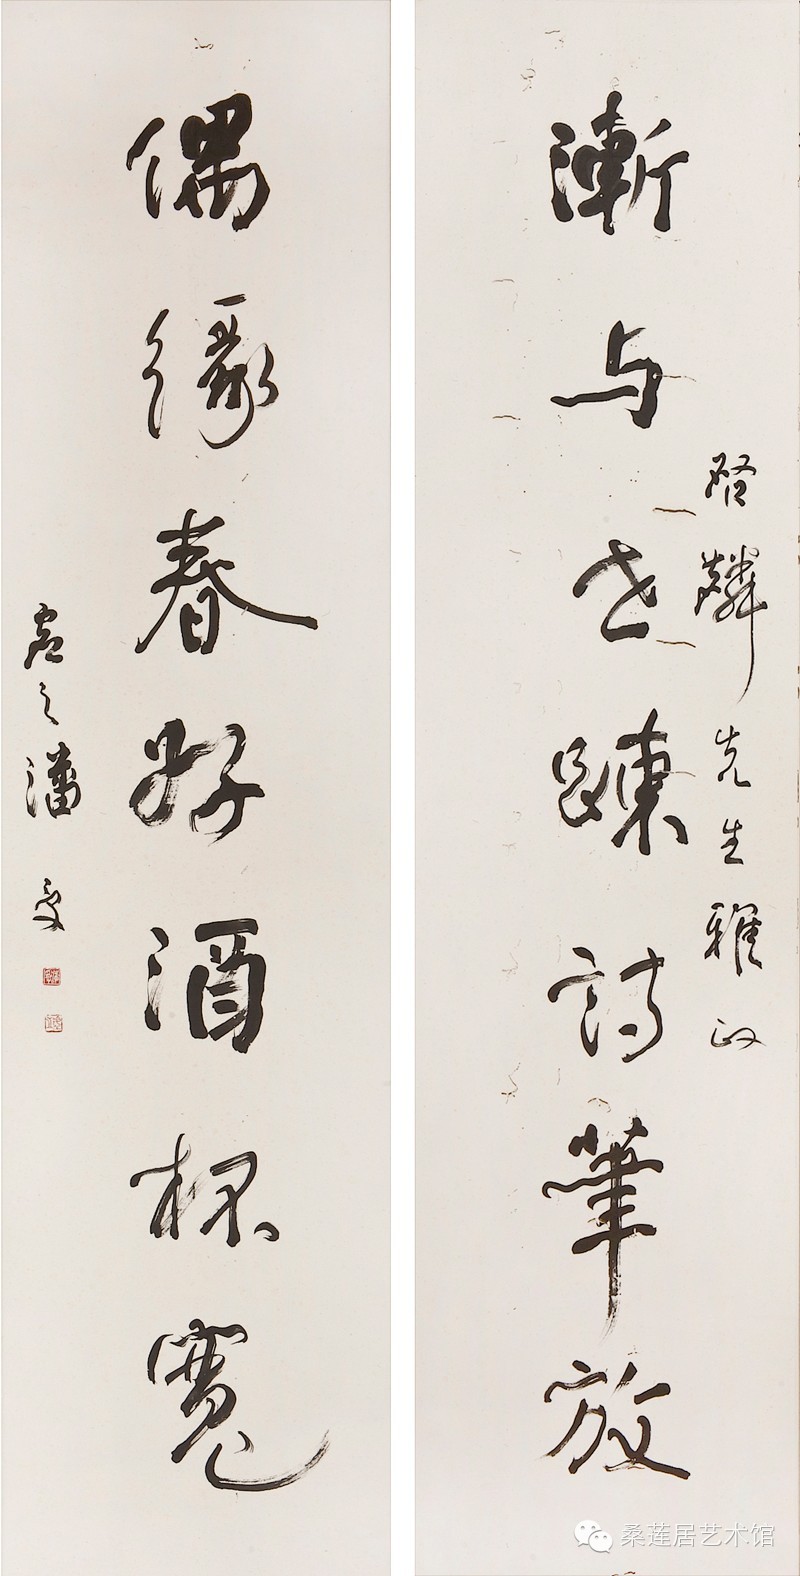 漸与世踈詩筆放
啓麟先生雅政
偶緣春好酒杯寬
虛之潘受
桑莲居艺术馆